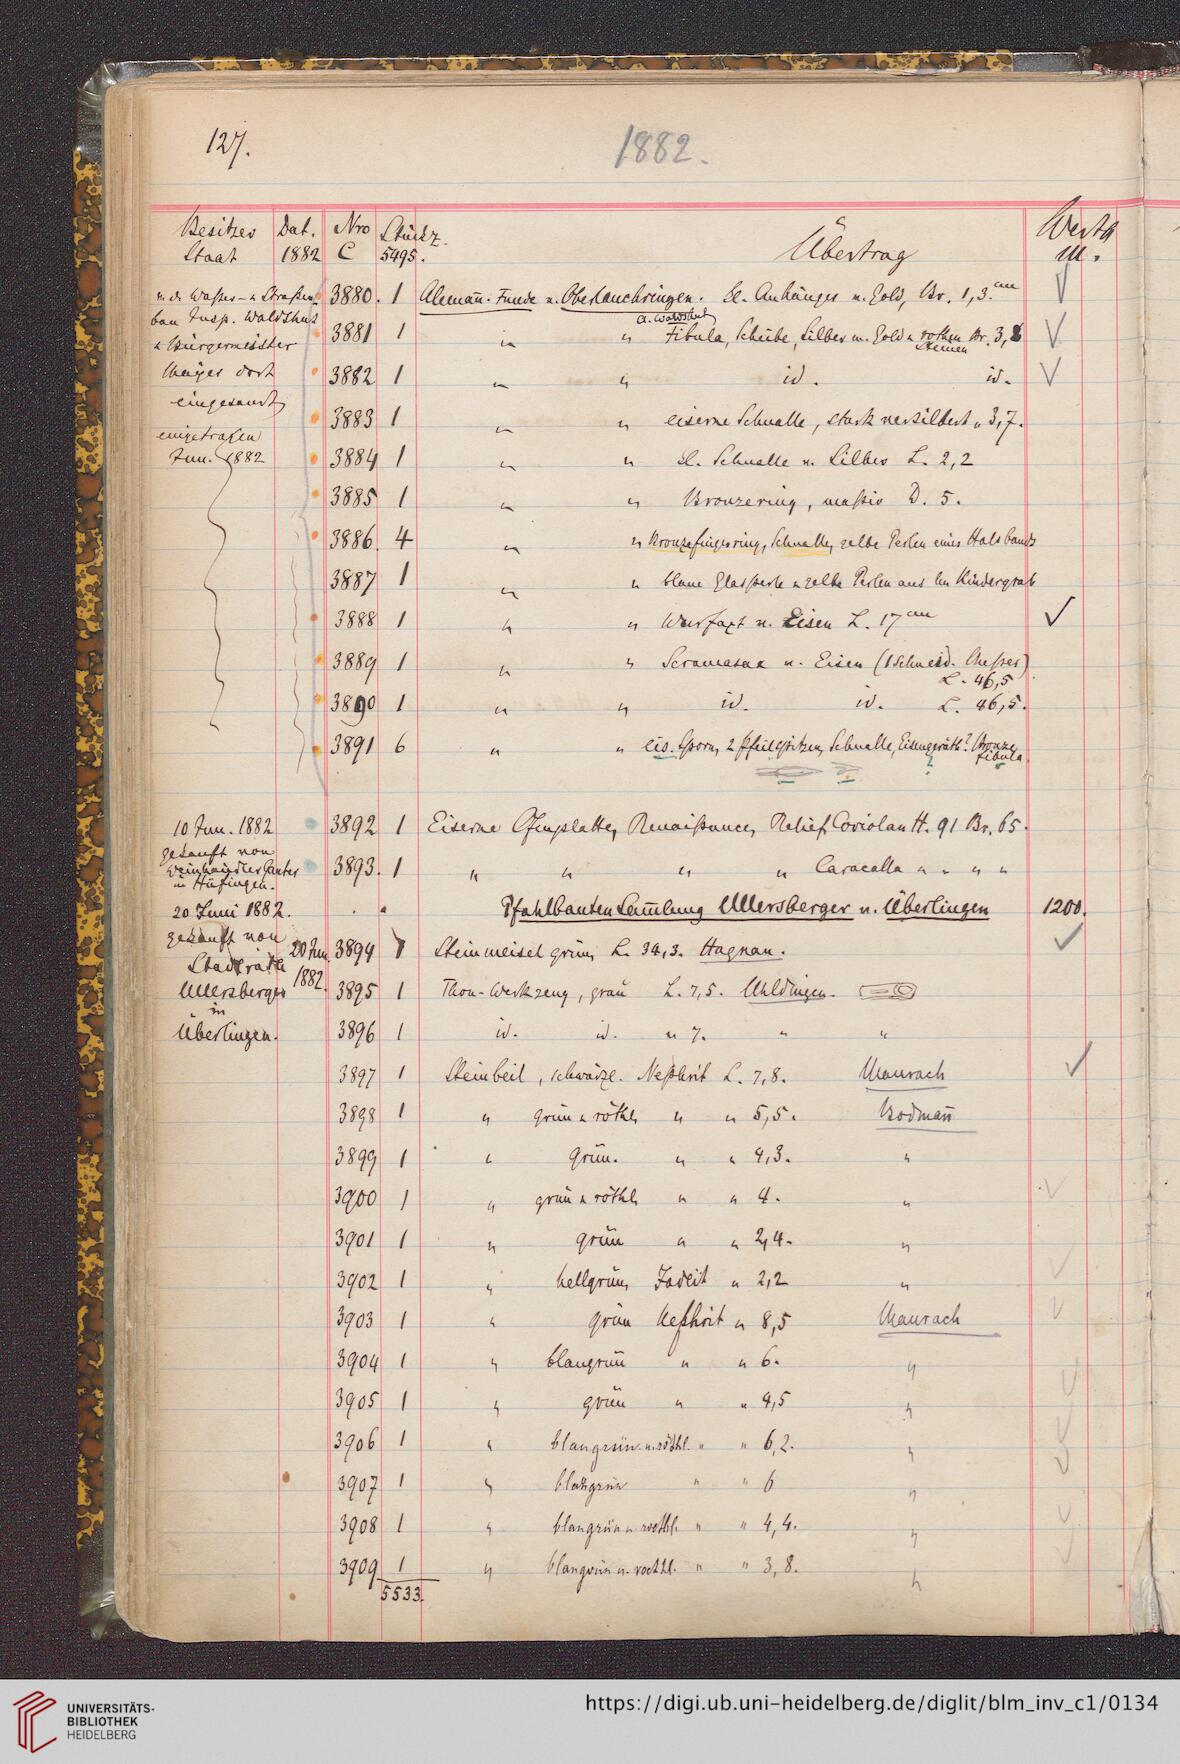 127.
1882.
Besitzer Dat. Nro Stückz. Übertrag Werth
Staat 1882 C 5495. M.
v. d. Waßer- u Straßen 3880. 1 Alemañ. Funde v. Oberlauchringen. Kl. Anhänger v. Gold, Br. 1,3. cm
bau Insp. Waldshut A. Waldshut
3881 1 " " Fibula, Scheibe, Silber m. Gold u rothen Br. 3,8
u Bürgermeister Steinen
Mayer dort 3882 1 " " id. id.
eingesandt
3883 1 " " eiserne Schnalle, stark versilbert " 3,7.
eingetragen
Jun. 1882 3884 1 " " kl. Schnalle v. Silber L. 2,2
3885 1 " " Bronzering, maßiv D. 5.
3886. 4 " " Bronzefingerring, Schnalle, gelbe Perlen eines Halsbands
3887 1 " " blaue Glasperle u gelbe Perlen aus Kindergrab
3888 1 " " Wurfaxt v. Eisen L. 17 cm
3889 1 " " Scramasax v. Eisen (1 Schneid. Meßer)
L. 46,5
3890 1 " " id. id. L. 46,5.
3891 6 " " eis. Sporn, 2 Pfeilspitzen, Schnalle, Eisengeräth? Bronze
fibula.
10 Jun. 1882 3892 1 Eiserne Ofenplatte, Renaißance, Relief Coriolan H. 91 Br. 65.
gekauft von
Weinhändler Ganter 3893. 1 " " " " Caracalla " " " "
in Hüfingen.
20 Juni 1882. Pfahlbauten Sam̄lung Ullersberger v. Überlingen 1200.
gekauft von
Stadtrath 20 Jun. 3894 1 Steinmeisel grün, L. 34,3. Hagnau.
Ullersberger 1882. 3895 1 Thon-Werkzeug, grau L. 7,5. Uhldingen.
in
Überlingen. 3896 1 id. id. " 7. " "
3897 1 Steinbeil, schwärzl. Nephrit L. 7,8. Maurach
3898 1 " grün u röthl. " " 5,5. Bodman̄
3899 1 " grün. " " 4,3. "
3900 1 " grün u röthl. " " 4. "
3901 1 " grün " " 2,4. "
3902 1 " hellgrün, Jadeit " 2,2 "
3903 1 " grün Nephrit " 8,5 Maurach
3904 1 " blaugrün " " 6. "
3905 1 " grün " " 4,5 "
3906 1 " blaugrün u. röthl. " " 6,2. "
3907 1 " blaugrün " " 6 "
3908 1 " blaugrün u. roethl. " " 4,4. "
3909 1 " blaugrün u. roethl. " " 3,8. "
5533.
UNIVERSITÄTS-
BIBLIOTHEK
HEIDELBERG
https://digi.ub.uni-heidelberg.de/diglit/blm_inv_c1/0134